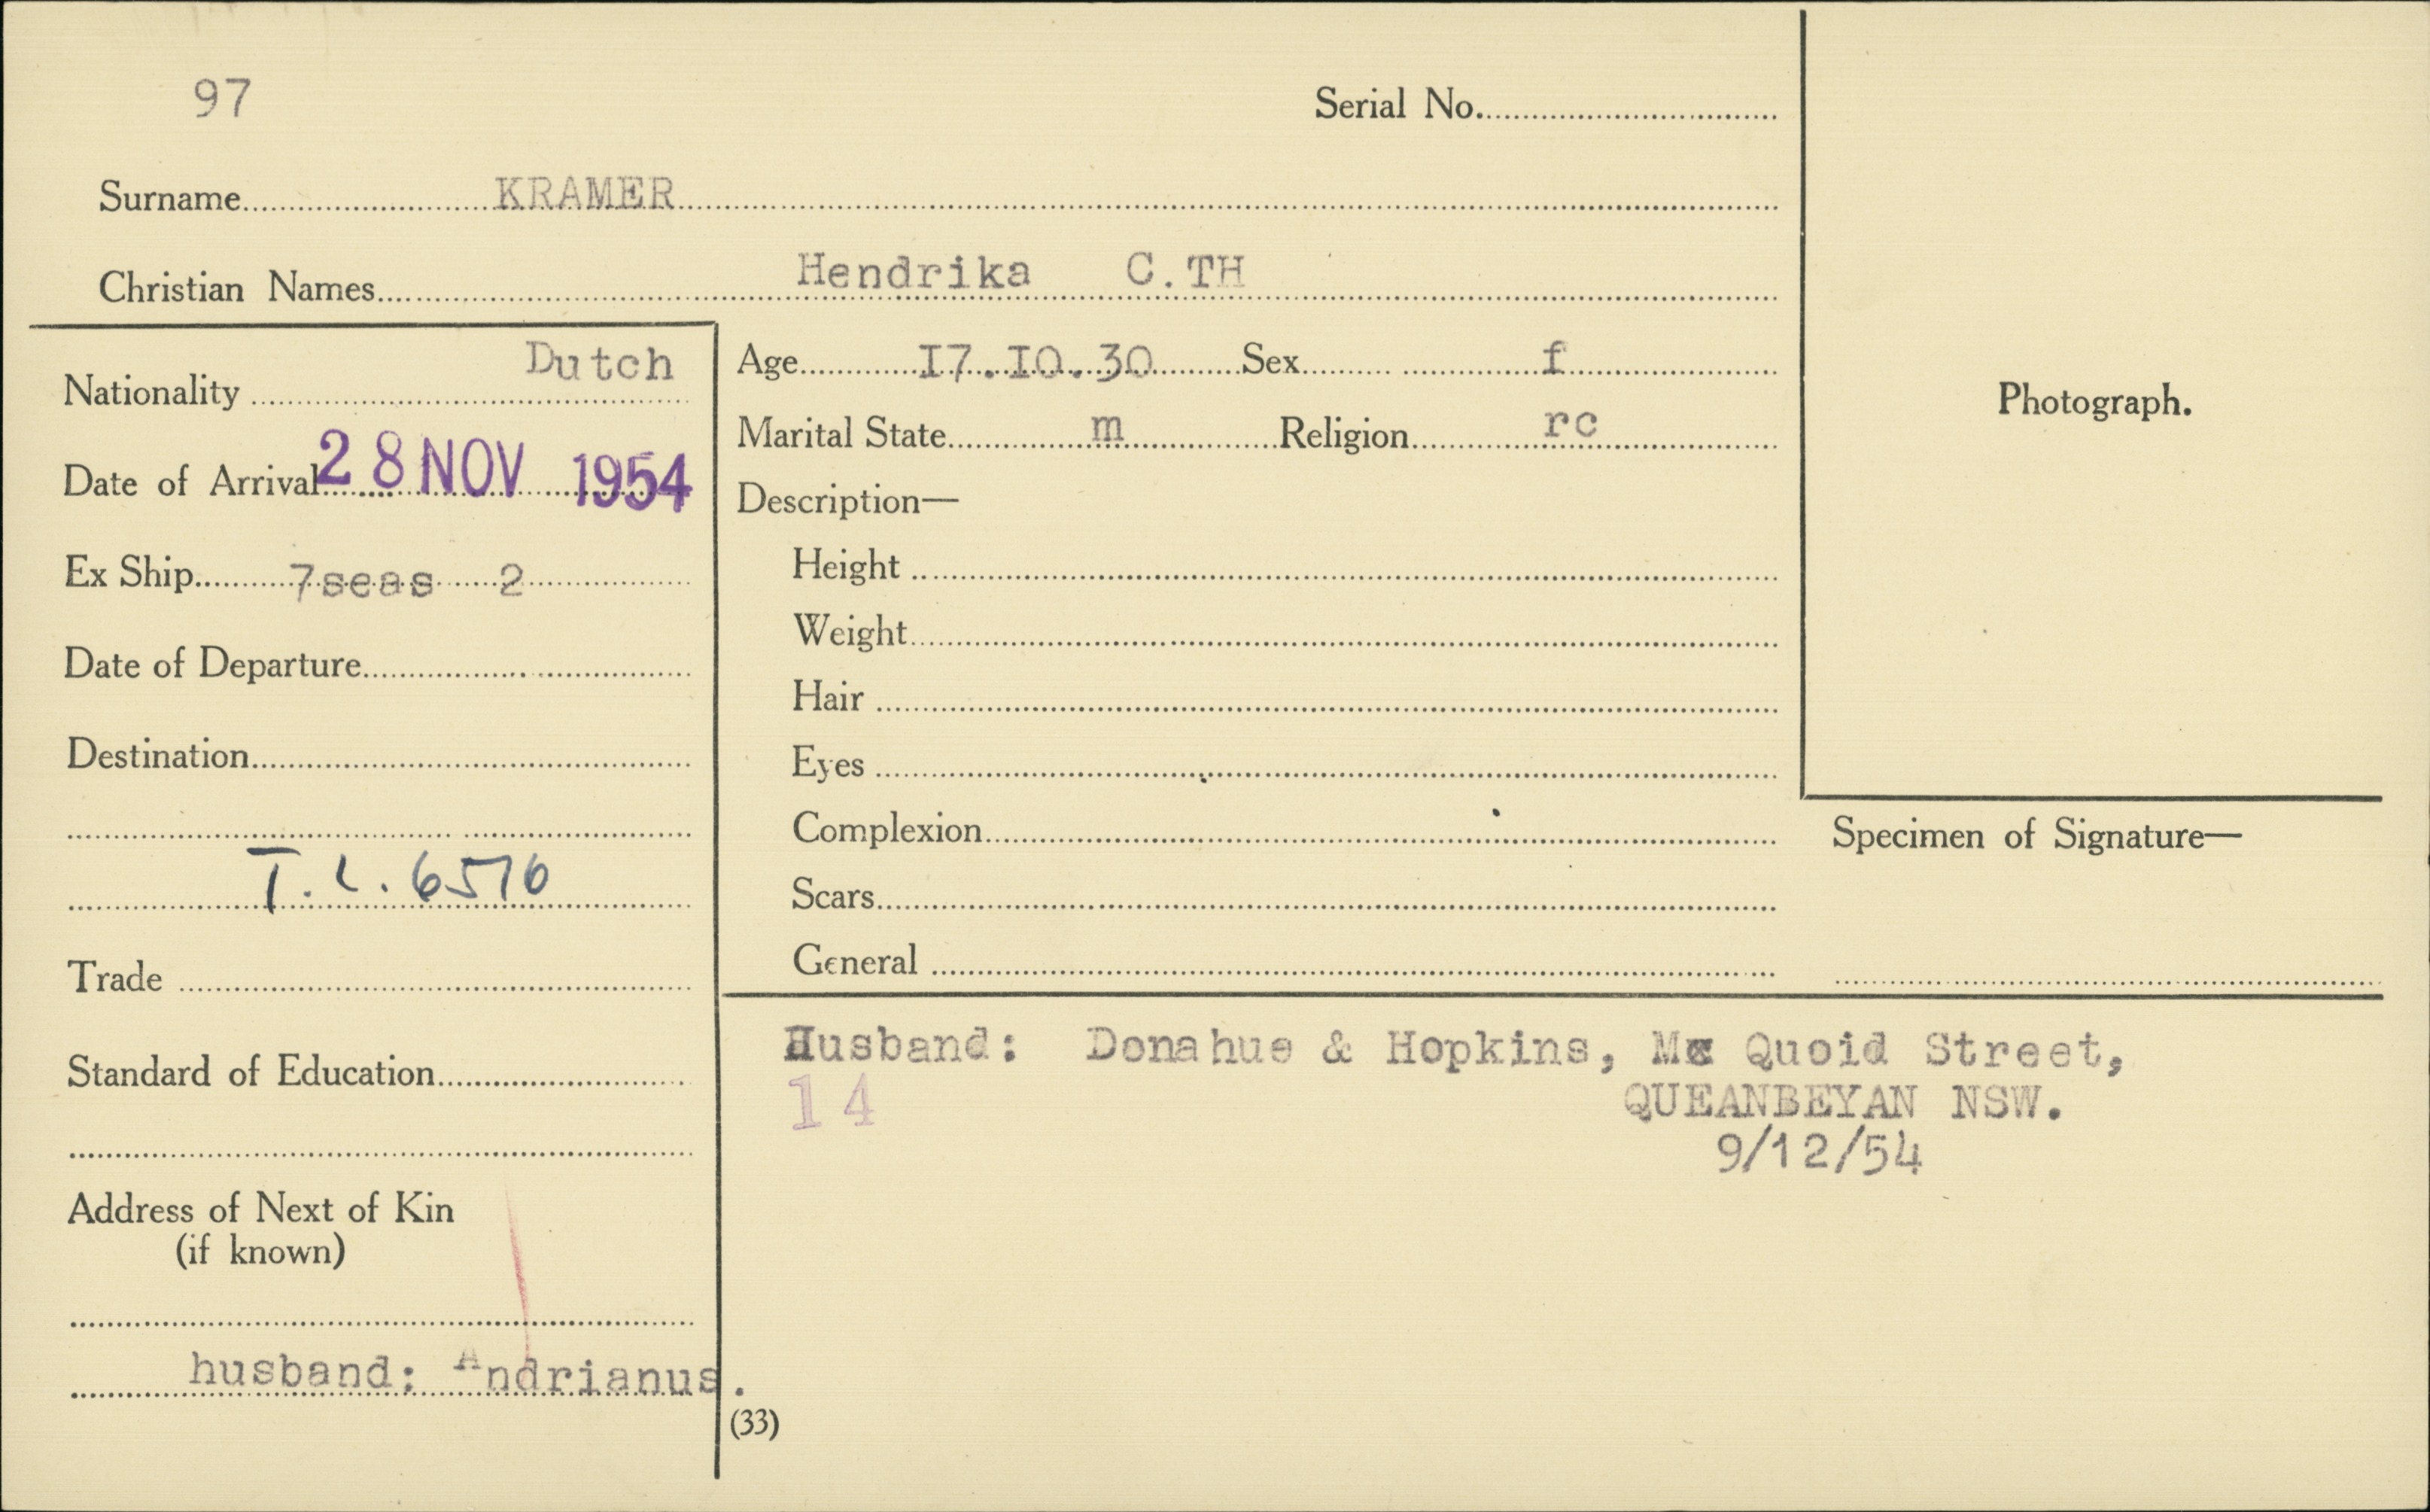 97
Serial No.
Surname KRAMER
Christian Names Hendrika C.TH
Nationality Dutch
Date of Arrival 28 NOV 1954
Ex Ship 7seas 2
Date of Departure
Destination
T.L. 6576
Trade
Standard of Education
Address of Next of Kin
(if known)
husband: Andrianus.
Age I7.I0.30 Sex f
Marital State m Religion rc
Description—
Height
Weight
Hair
Eyes
Complexion
Scars
General
Photograph.
Specimen of Signature—
Husband: Donahue & Hopkins, Mc Quoid Street,
14 QUEANBEYAN NSW.
9/12/54
(33)